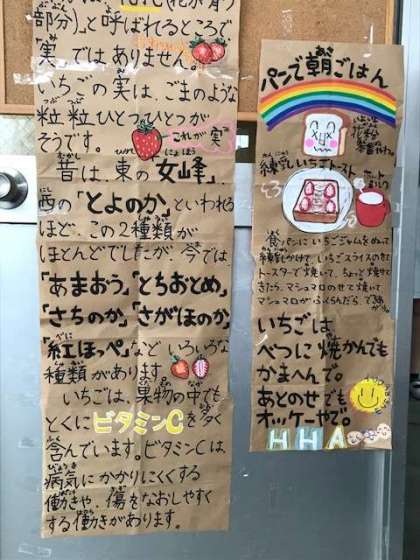 部分)」と呼ばれるところで
「実」ではありません。
いちごの実は、ごまのような
粒粒ひとつひとつが
そうです。
これが実
昔は、東の「女峰」、
西の「とよのか」といわれる
ほど、この2種類が
ほとんどでしたが、今では
「あまおう」「とちおとめ」
「さちのか」「さがほのか」
「紅ほっぺ」など いろいろな
種類があります。
いちごは、果物の中でも
とくにビタミンCを多く
含んでいます。ビタミンCは、
病気にかかりにくくする
働きや、傷をなおしやすく
する働きがあります。
パンで朝ごはん
練乳いちごトースト
食パンに いちごジャムをぬって
練乳かけて、いちごスライスのせて
トースターで焼いて、ちょっと焼けて
きたら、マシュマロのせて焼いて
マシュマロが ふくらんだら
いちごは、
べつに 焼かんでも
かまへんで。
あとのせでも
オッケーやで。
HHA